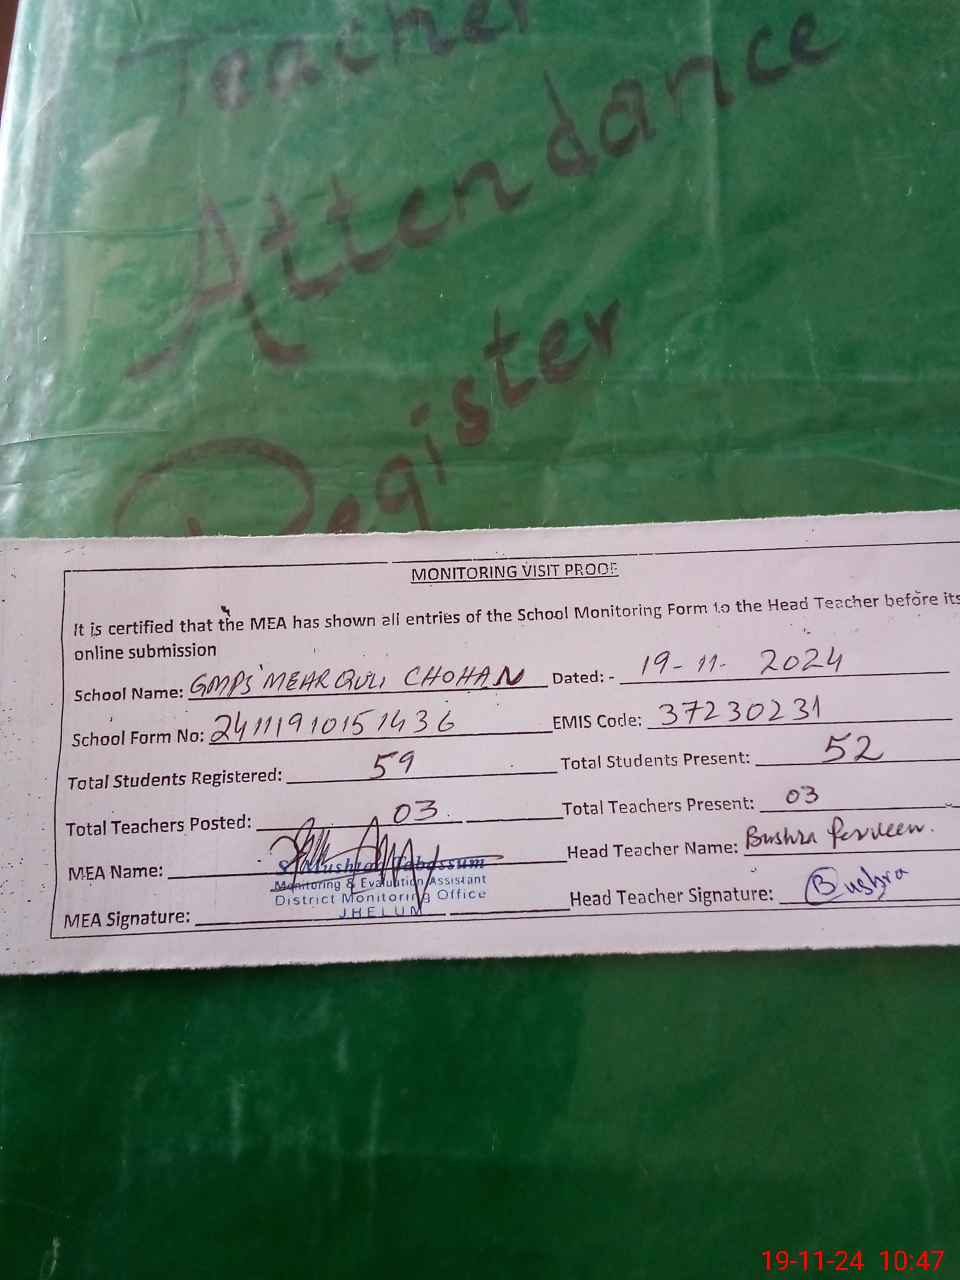 Teacher
Attendance
Register
MONITORING VISIT PROOF
It is certified that the MEA has shown all entries of the School Monitoring Form to the Head Teacher before its
online submission
School Name: GMPS MEHR QULI CHOHAN Dated: - 19-11-2024
School Form No: 2411191015 1436 EMIS Code: 37230231
Total Students Registered: 59 Total Students Present: 52
Total Teachers Posted: 03 Total Teachers Present: 03
MEA Name: Head Teacher Name: Bushra Perveen.
S Tabassum
Monitoring & Evaluation Assistant
District Monitoring Office
JHELUM
MEA Signature: Head Teacher Signature: Bushra
19-11-24 10:47